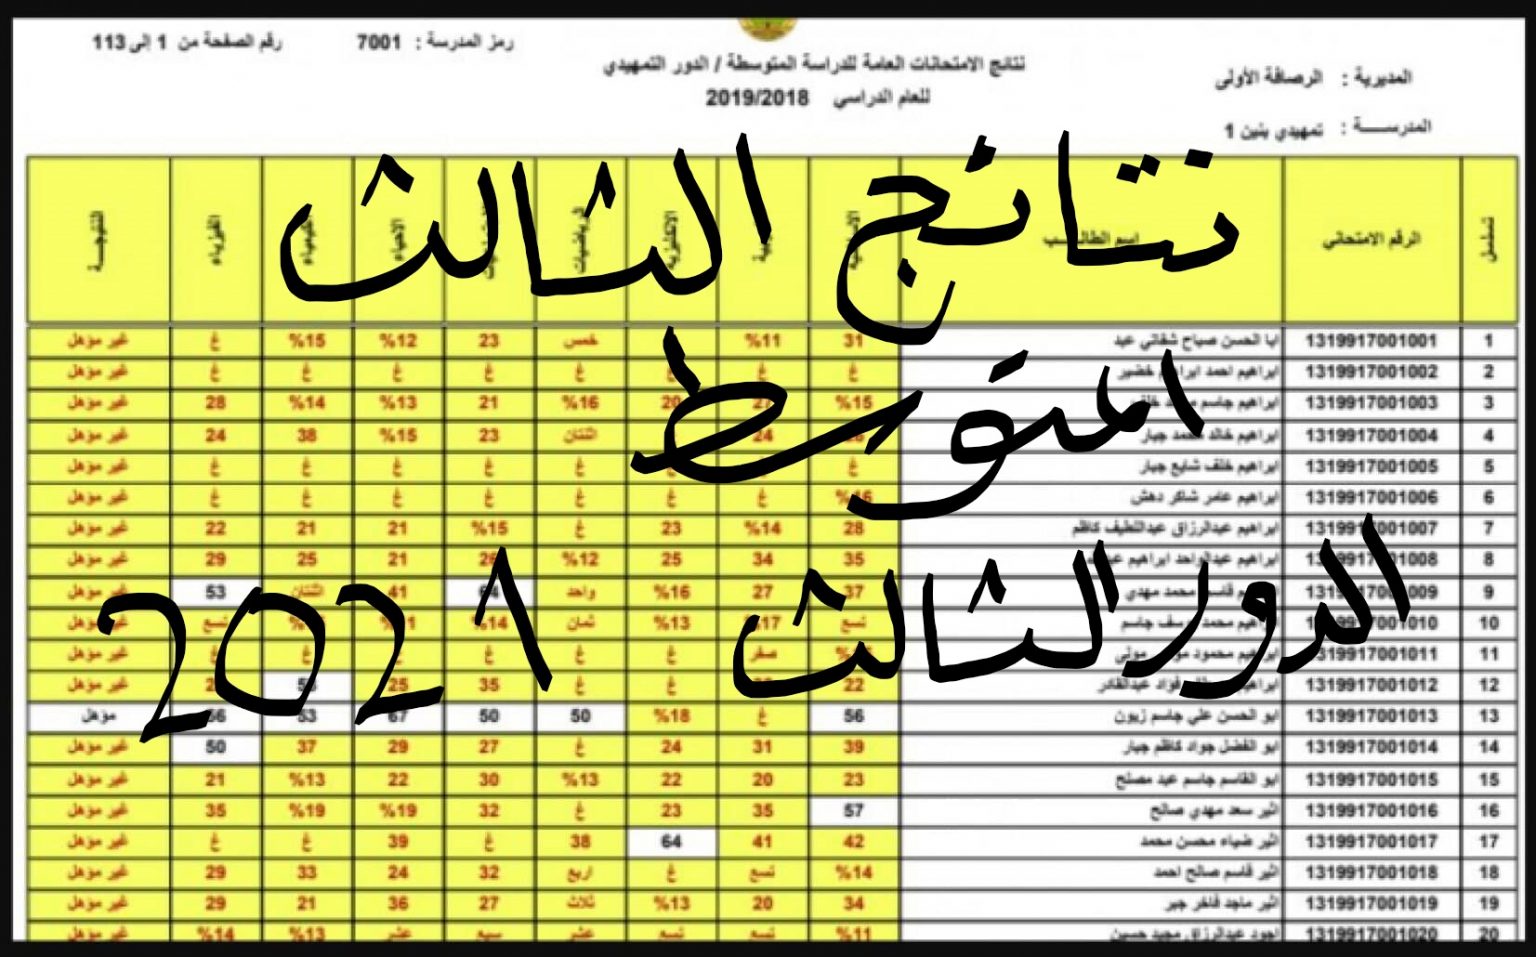 رقم الصفحة من 1 إلى 113
رمز المدرسة : 7001
نتائج الامتحانات العامة للدراسة المتوسطة / الدور التمهيدي
للعام الدراسي 2019/2018
المديرية : الرصافة الأولى
المدرســـة : تمهيدي بنين 1
نتائج الثالث
المتوسط
الدور الثالث 2021
تسلسل الرقم الامتحاني الانكليزية الرياضيات الاحياء الكيمياء الفيزياء النتيجـــة
1 1319917001001 ابا الحسن صباح شفاتي عبد 31 %11 خمس 23 %12 %15 غ غير مؤهل
2 1319917001002 ابراهيم احمد خضير غ غ غ غ غ غ غير مؤهل
3 1319917001003 ابراهيم جاسم %15 27 20 %16 21 %13 %14 28 غير مؤهل
4 1319917001004 ابراهيم خالد محمد جبار 24 اثنتان 23 %15 38 24 غير مؤهل
5 1319917001005 ابراهيم خلف شايع جبار غ غ غ غ غ غ غير مؤهل
6 1319917001006 ابراهيم عامر شاكر دهش %16 غ غ غ غ غ غ غ غير مؤهل
7 1319917001007 ابراهيم عبدالرزاق عبداللطيف كاظم 28 %14 23 غ %15 21 21 22 غير مؤهل
8 ابراهيم عبدالواحد ابراهيم 35 34 25 %12 26 21 25 29 غير مؤهل
9 قاسم محمد مهدي 37 27 %16 واحد 64 41 اثنتان 53 غير مؤهل
10 محمد يوسف جاسم تسع %17 %13 ثمان %14 تسع غير مؤهل
11 ابراهيم محمود صفر غ غ غ غ غير مؤهل
12 1319917001012 ابراهيم فؤاد عبدالقادر 22 غ غ 35 25 غير مؤهل
13 1319917001013 ابو الحسن علي جاسم زبون 56 غ %18 50 50 67 53 56 مؤهل
14 1319917001014 ابو الفضل جواد كاظم جبار 39 31 24 غ 27 29 37 50 غير مؤهل
15 1319917001015 ابو القاسم جاسم عبد مصلح 23 20 22 %13 30 22 %13 21 غير مؤهل
16 1319917001016 اثير سعد مهدي صالح 57 35 23 غ 32 %19 %19 35 غير مؤهل
17 1319917001017 اثير ضياء محسن محمد 42 41 64 38 غ 39 غ غ غير مؤهل
18 1319917001018 اثير قاسم صالح احمد %14 تسع غ اربع 32 24 33 29 غير مؤهل
19 1319917001019 اثير ماجد فاخر جبر 34 20 %13 ثلاث 27 36 21 29 غير مؤهل
20 1319917001020 اجود عبدالرزاق مجيد حسين %11 تسع تسع عشر سبع عشر %13 %14 غير مؤهل